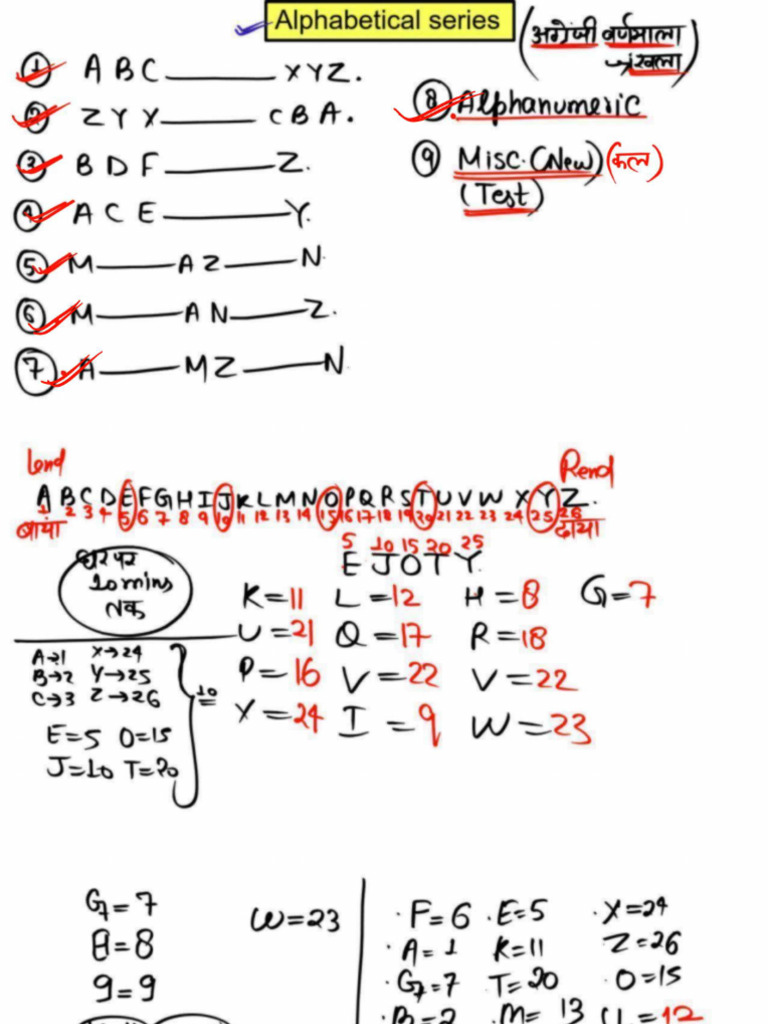 Alphabetical series
(अंग्रेजी वर्णमाला
श्रृंखला)
① A B C ______ X Y Z.
② Z Y X ______ C B A.
③ B D F ______ Z.
④ A C E ______ Y.
⑤ M ______ A Z ______ N
⑥ M ______ A N ______ Z.
⑦ A ______ M Z ______ N
⑧ Alphanumeric
⑨ Misc. (New) (कल)
(Test)
Lend
Rend
A B C D E F G H I J K L M N O P Q R S T U V W X Y Z.
1 2 3 4 5 6 7 8 9 10 11 12 13 14 15 16 17 18 19 20 21 22 23 24 25 26
बायां
दायां
5 10 15 20 25
E J O T Y
घर पर
10 mins
तक
K=11 L=12 H=8 G=7
U=21 Q=17 R=18
P=16 V=22 V=22
X=24 I=9 W=23
A→1 X→24
B→2 Y→25
C→3 Z→26
10
E=5 O=15
J=10 T=20
G=7
8=8
9=9
W=23
.F=6 .E=5 .X=24
.A=1 K=11 Z=26
.G=7 T=20 .O=15
.B=2 .M=13 U=12